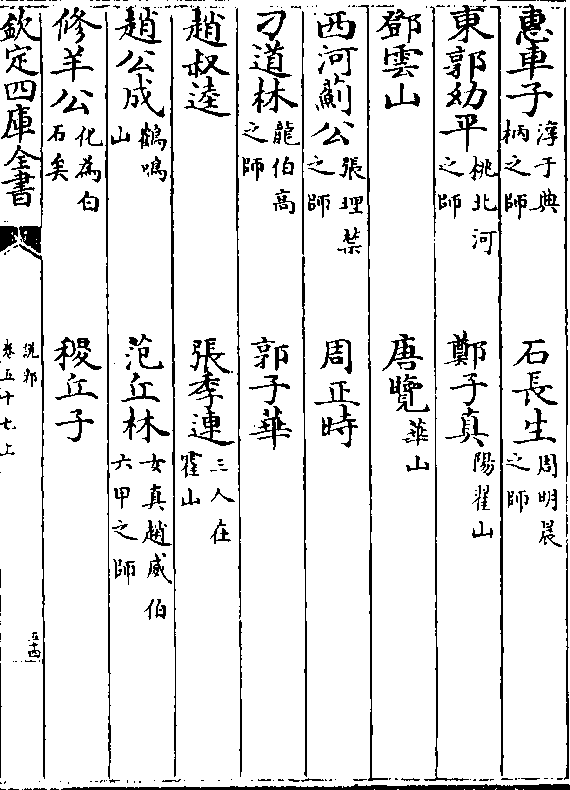 惠車子淳于典柄之師 石長生周明晨之師
東郭幼平桃北河之師 鄭子真陽翟山
鄧雲山 唐覽華山
西河薊公張理禁之師 周正時
刁道林龍伯高之師 郭子華
趙叔逵 張季連三人在霍山
趙公成鶴鳴山 范丘林女真趙威伯六甲之師
修羊公化為白石矣 稷丘子
欽定四庫全書 説郛卷五十七上 五十四